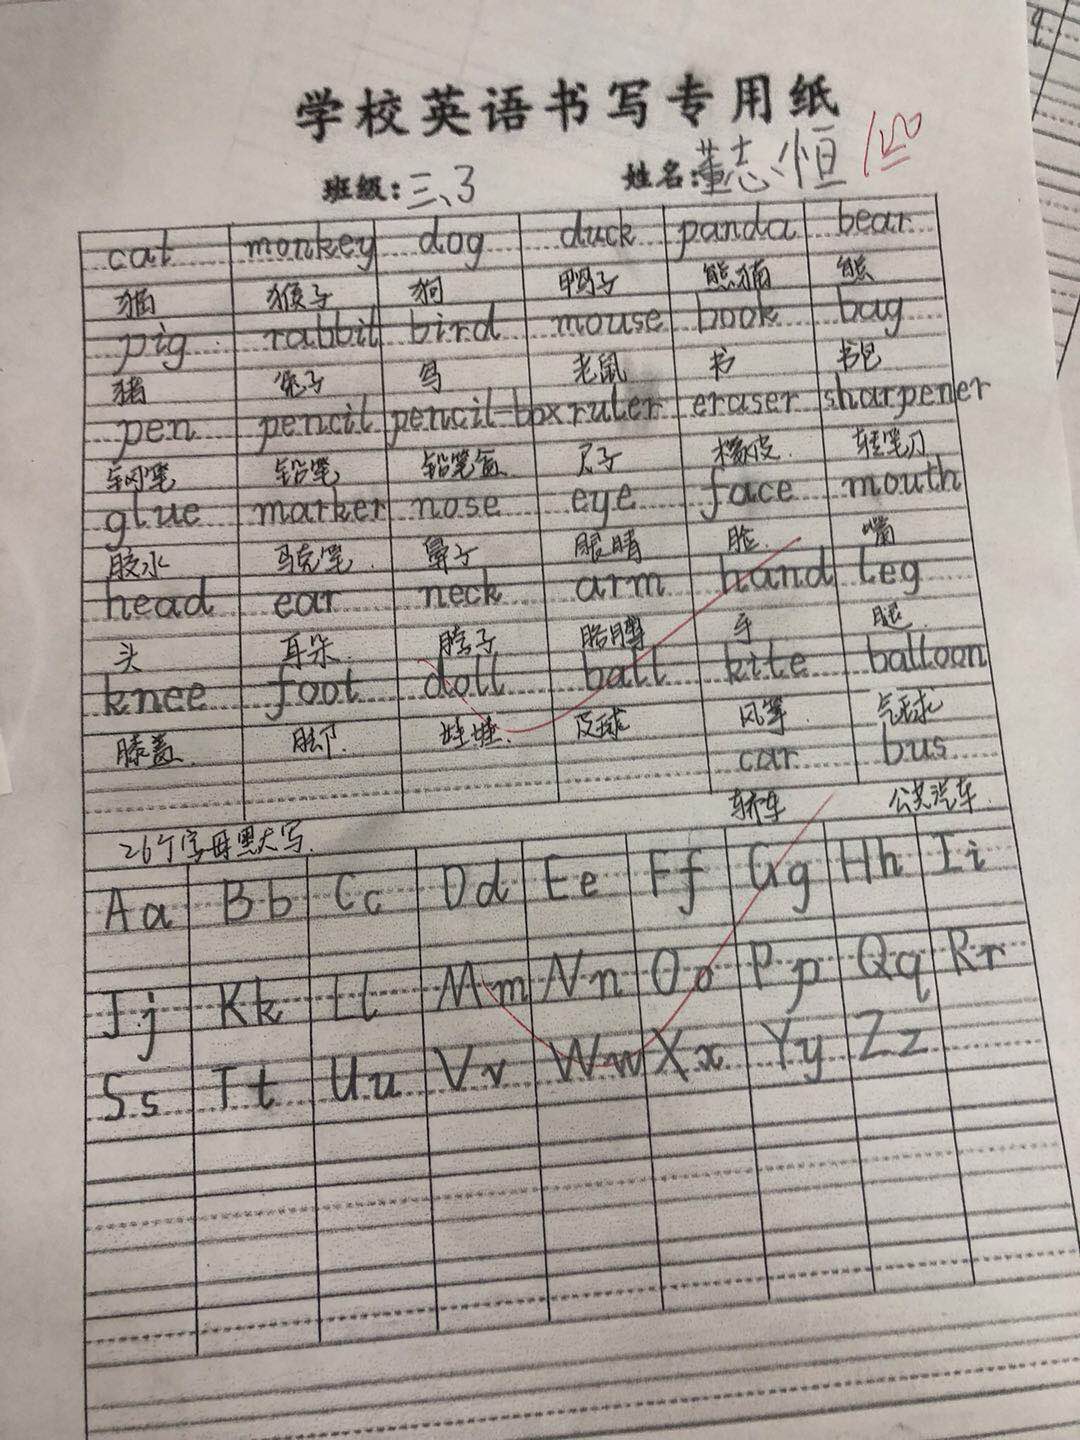 学校英语书写专用纸
班级:三、3 姓名:董志恒 100
cat monkey dog duck panda bear
猫 猴子 狗 鸭子 熊猫 熊
pig rabbit bird mouse book bag
猪 兔子 鸟 老鼠 书 书包
pen pencil pencil-box ruler eraser sharpener
钢笔 铅笔 铅笔盒 尺子 橡皮 转笔刀
glue marker nose eye face mouth
胶水 马克笔 鼻子 眼睛 脸 嘴
head ear neck arm hand leg
头 耳朵 脖子 胳膊 手 腿
knee foot doll ball kite balloon
膝盖 脚 娃娃 皮球 风筝 气球
car bus
轿车 公共汽车
26个字母默大写
Aa Bb Cc Dd Ee Ff Gg Hh Ii
Jj Kk Ll Mm Nn Oo Pp Qq Rr
Ss Tt Uu Vv Ww Xx Yy Zz